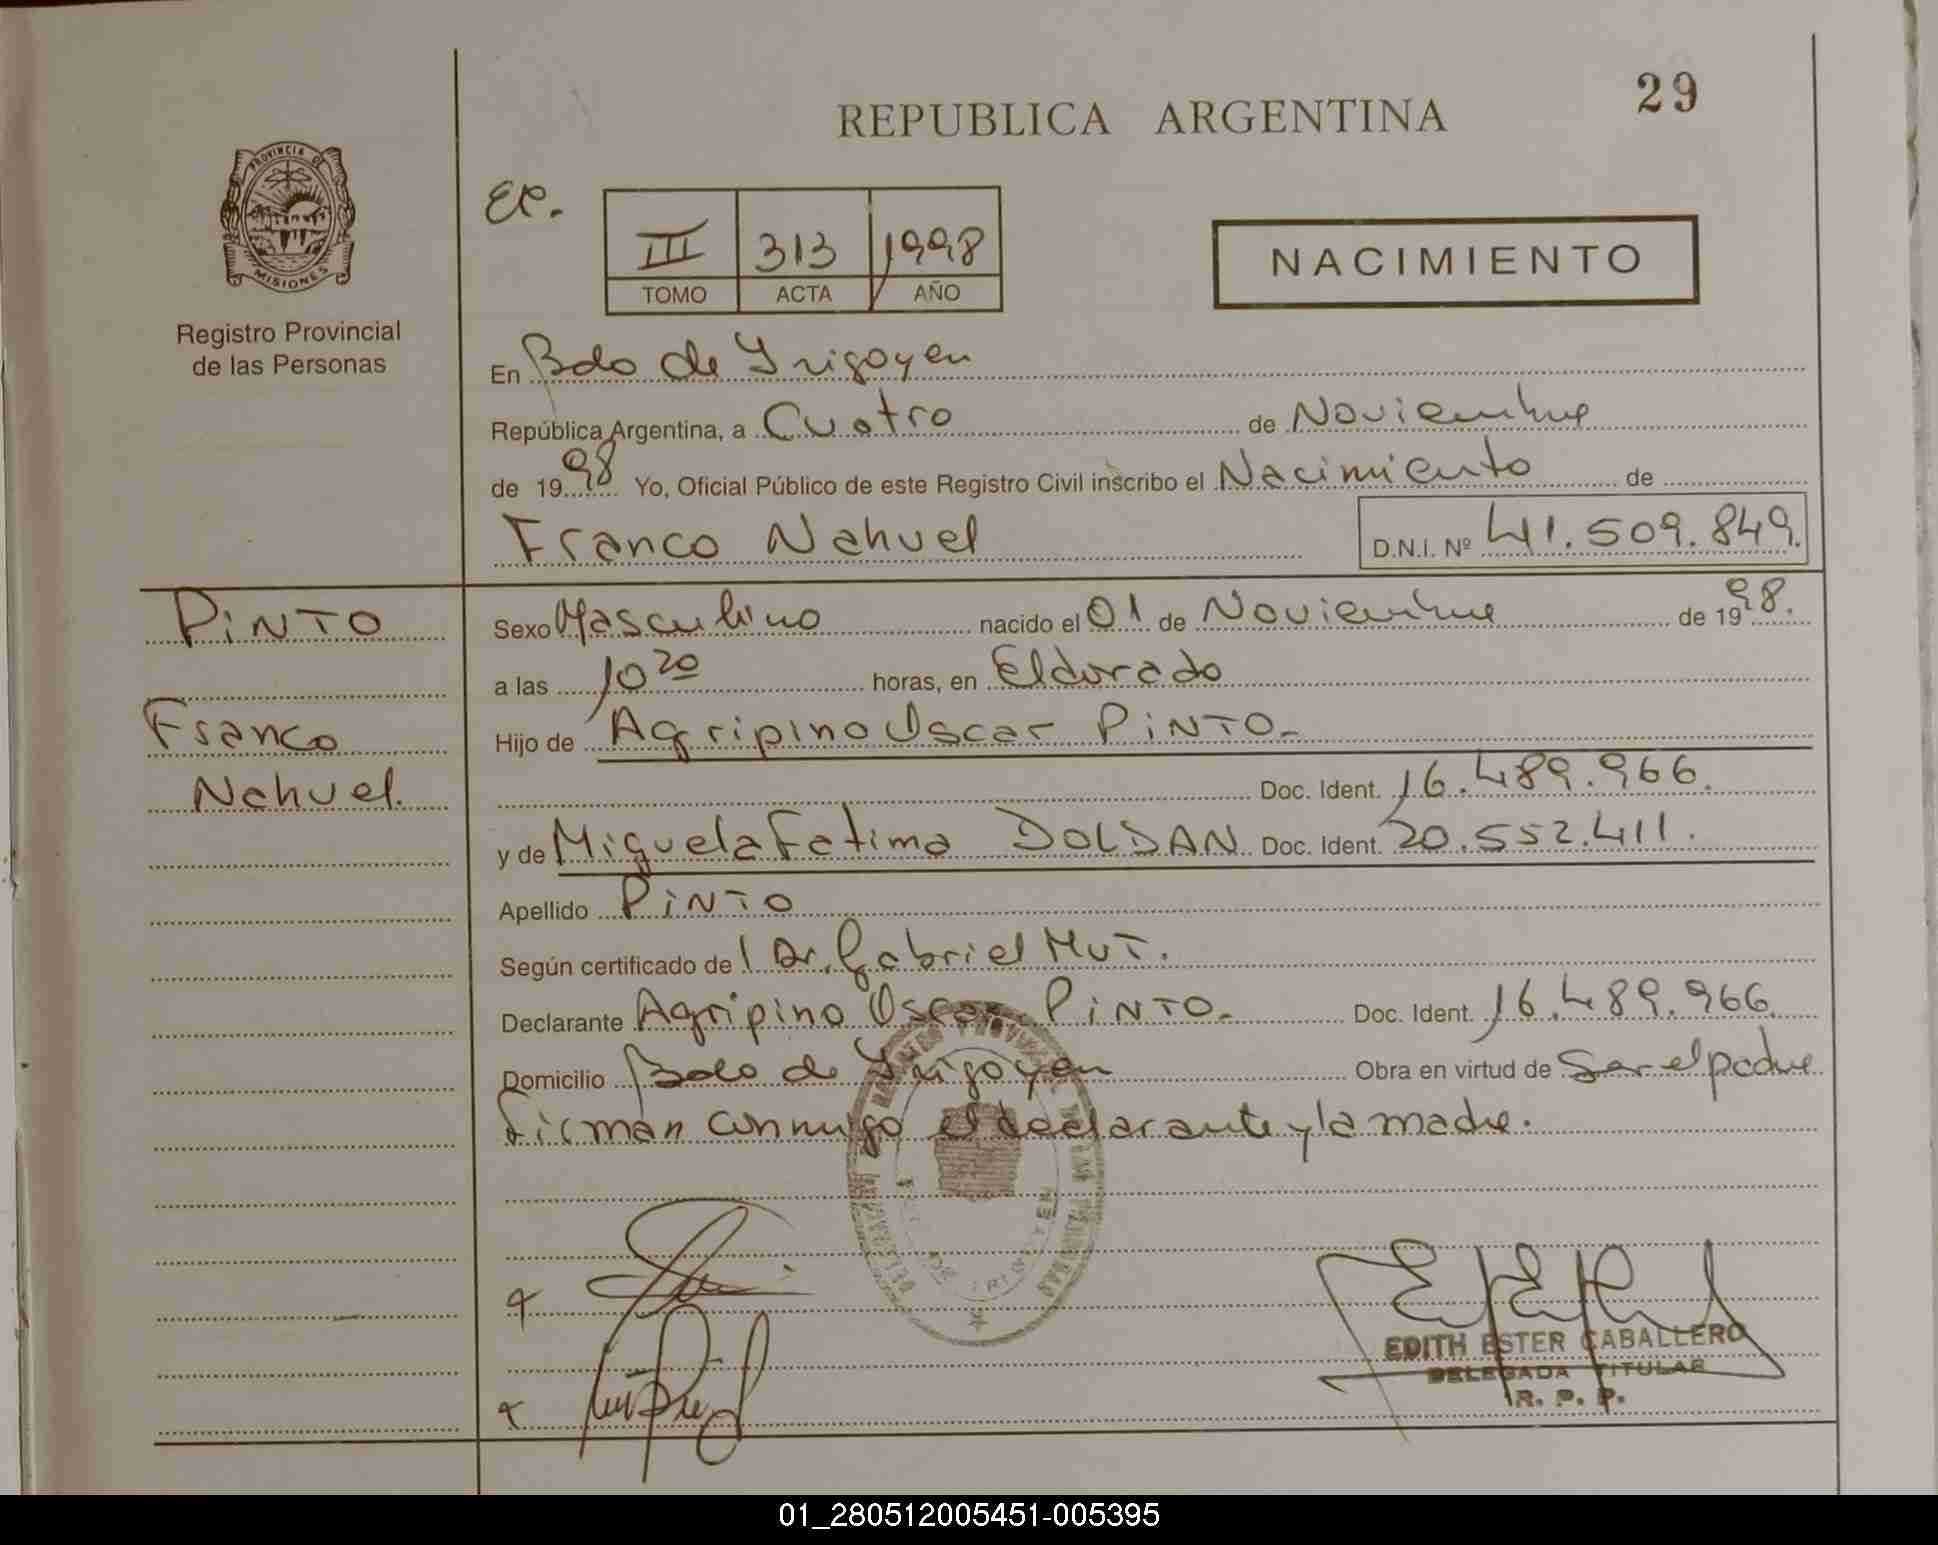 29
REPUBLICA ARGENTINA
PROVINCIA DE
MISIONES
Registro Provincial
de las Personas
III 313 1998
TOMO ACTA AÑO
NACIMIENTO
En Bdo de Yrigoyen
República Argentina, a Cuatro de Noviembre
de 1998 Yo, Oficial Público de este Registro Civil inscribo el Nacimiento de
Franco Nahuel D.N.I. Nº 41.509.849.
PINTO
Franco
Nahuel.
Sexo Masculino nacido el 01 de Noviembre de 1998.
a las 10 20 horas, en Eldorado
Hijo de Agripino Oscar PINTO.
Doc. Ident. 16.489.966.
y de Miguela Fatima DOLDAN Doc. Ident. 20.552.411.
Apellido PINTO
Según certificado de l Dr. Gabriel MUT.
Declarante Agripino Oscar PINTO. Doc. Ident. 16.489.966.
Domicilio Bdo de Yrigoyen Obra en virtud de Ser el padre
firman conmigo el declarante y la madre.
EDITH ESTER CABALLERO
DELEGADA TITULAR
R. P. P.
01_280512005451-005395